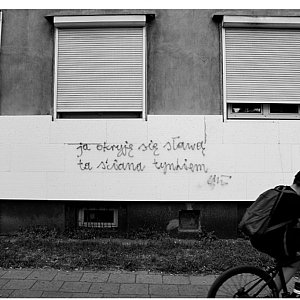 ja okryję się sławą
ta ściana tynkiem